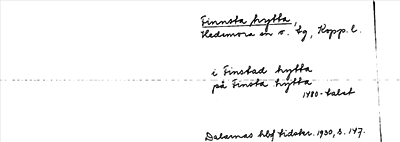 Finnsta hytta,
Hedemora sn o. tg, Kopp. l.
i Finstad hytta
på Finsta hytta
1480-talet
Dalarnas hbf tidskr. 1930, s. 147.